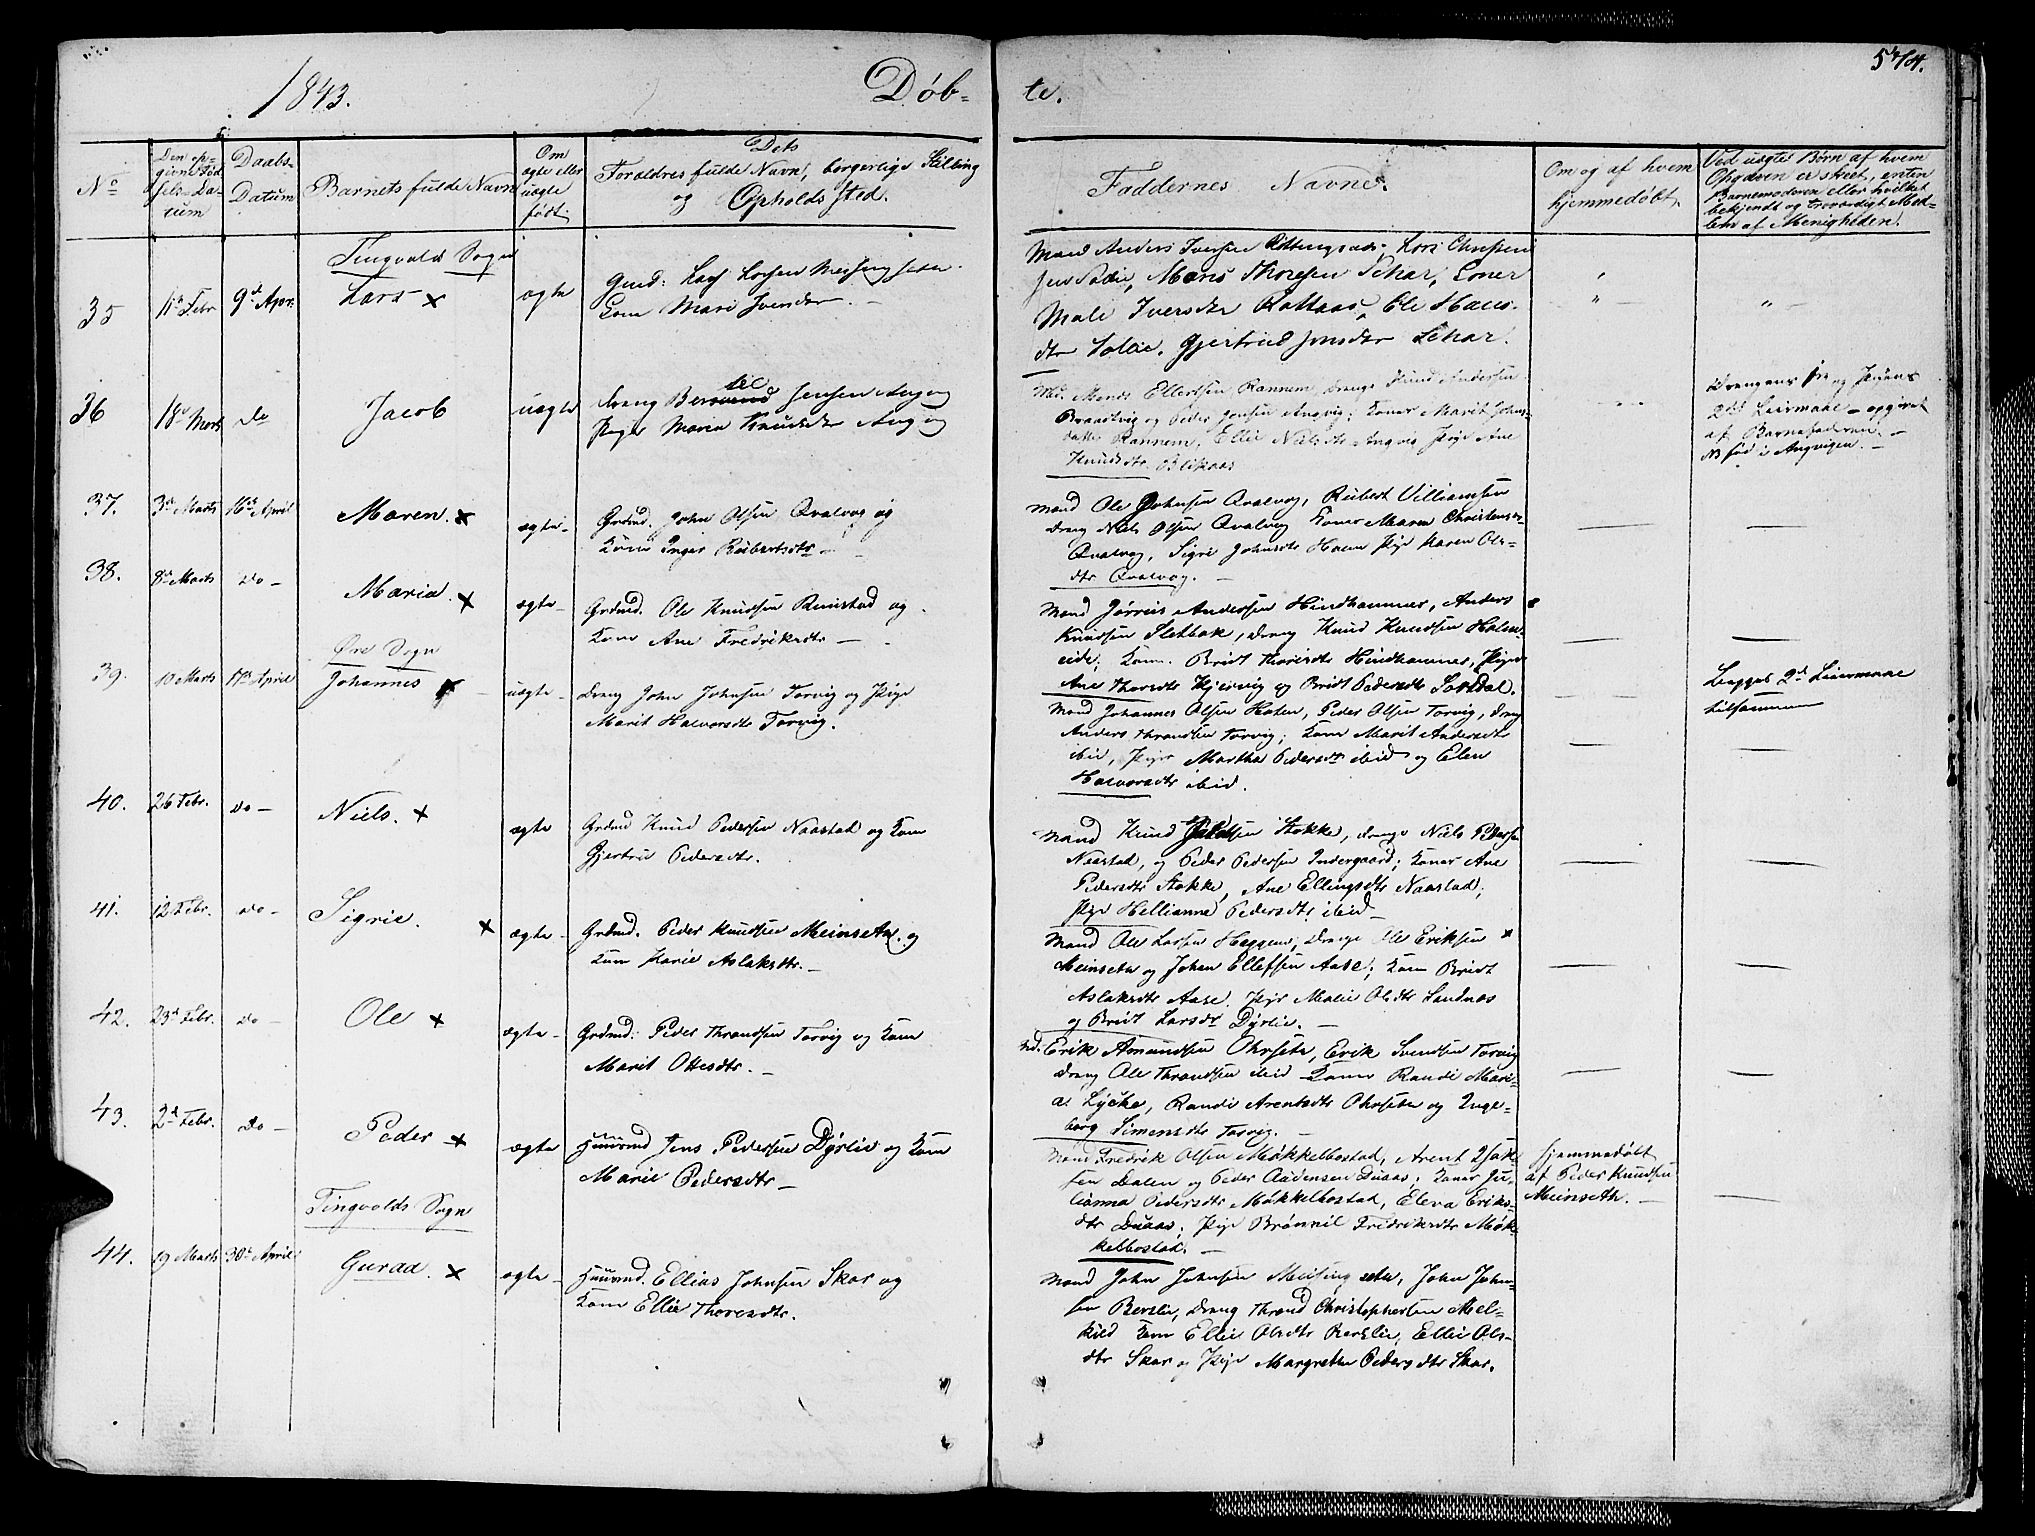 1843.
Døb-
te.
574.
No
Den op-
givne Fød
sels-Da-
tum
Daabs-
Datum
Barnets fulde Navn
Om
ægte eller
uægte
født.
Dets
Forældres fulde Navn, borgerlige Stilling
og Opholds sted.
Faddernes Navne.
Om og af hvem
hjemmedøbt.
Ved uægte Børn af hvem
Opgaven er skeet, enten
Barnemoderen eller hvilket
bekjendt og troværdigt Med-
lem af Menigheden.
Tingvolds Sogn
35
11te Febr
9de Apr:
Lars x
ægte
Gmd: Lars Larsen Meisingseter
Kone Mari Iversdtr. -
Mand Anders Iversen
Mons Thoresen Skar, Koner
Mali Iversdtr Rottaas, Ele Hans-
dtr Solie, Gjertrud Jonsdtr Skar.
36
18de Marts
Do
Jacob
uægte
Dreng Jensen Angvig
Pige Maren Knudsdtr Angvig
Md. Mons Ellertsen Rannem, Drenge Knud Andersen
Braastvig og Peder Jensen Angvig; Koner Marit Johns-
datter Rannem, Ellie Nielsdtr Angvig Pige Ane
Knudsdtr. Blikaas
Drengens 1ste og Pigens
2det Leiermaal - opgivet
af Barnefaderen. -
NB fød i Angvigen. -
37.
3de Marts
16de April
Maren. x
ægte-
Grdmd. John Olsen Qvalvog og
Kone Inger Rubertsdtr -
Mand Ole Johnsen Qvalvog, Rubert Villiamsen
Dreng Niels Olsen Qvalvog Koner Maren Christensdr
Qvalvog, Sigri Johnsdtr Holm Pige Karen Ols-
dtr Qvalvog. -
38.
8de Marts
Do -
Maria. x
ægte-
Grdmd. Ole Knudsen Rimstad og
Kone Ane Fredriksdtr -
Mand Jørgen Andersen Hindhammer, Anders
Knudsen Sletbak, Dreng Knud Knudsen Holm-
eide; Kone. Bridt Thoresdtr Hindhammer, Pige
Ane Thoresdtr Kjeivig og Bridt Pedersdtr Sordal.
Øre Sogn
39.
10 Marts
17de April
Johannes x
uægte-
Dreng John Johnsen Torvig og Pige
Marit Halvorsdtr Torvig.
Mand Johannes Olsen Holen, Peder Olsen Torvig, Dreng
Anders Throndsen Torvig; Kone Marit Andersdtr
ibid, Pige Martha Pedersdtr ibid og Elen
Halvorsdtr ibid.
Begges 2de Leiermaal
tilsammen
40.
26 Febr.
Do -
Niels. x
ægte
Grdmd Knud Pedersen Naastad og Kone
Gjertru Pedersdtr.
Mand Knud Stokke, Drenge Niels Pedersen
Naastad, og Peder Pedersen Indergaard; Koner Ane
Pedersdtr Stokke, Ane Ellingsdtr Naastad;
Pige Hellianna Pedersdtr. ibid
41.
12 Febr.
Do -
Sigrie. x
ægte-
Grdmd. Peder Knudsen Meinseth. og
Kone Marie Aslaksdtr. -
Mand Ole Larsen Heggem, Drenge Ole Eriksen x
Meinseth og Johan Ellefsen Aase; Kone Bridt
Aslaksdtr Aase. Pige Malie Olsdtr Sandnes
og Bridt Larsdtr Dyrlie. -
42.
23de Febr.
Do -
Ole x
ægte-
Grdmd: Peder Throndsen Torvig og Kone
Marit Ottesdtr. -
Md. Erik Amundsen Ohrseter, Erik Svendsen Torvig
Dreng Ole Throndsen ibid Koner Randi Mari-
a Lycke, Randi Arentsdtr Ohrseter og Inge-
borg Simensdtr Torvig. -
43.
2de Febr.
Do -
Peder x
ægte
Huusmd Jens Pedersen Dyrlie og Kone
Marie Pedersdtr -
Mand Fredrik Olsen Møkkelbostad, Arent Isak-
sen Dalen og Peder Audensen Duaas; Koner Ju-
lianna Pedersdtr Møkkelbostad, Eleva Eriks-
dtr Duaas; Pige Brønnil Fredriksdtr Møk-
kelbostad. -
hjemmedøbt
af Peder Knudsen
Meinseth. -
Tingvolds Sogn
44.
19 Marts
30te April
Guraa. x
ægte-
Huusmd. Ellias Johnsen Skar og
Kone Ellie Thoresdtr.
Mand John Johnsen Meisingseter, John John-
sen Berslie, Dreng Thrond Christophersen Mel-
kild Kone Ellie Olsdtr Berslie, Ellie Ols-
dtr Skar og Pige Margrethe Pedersdtr Skar.